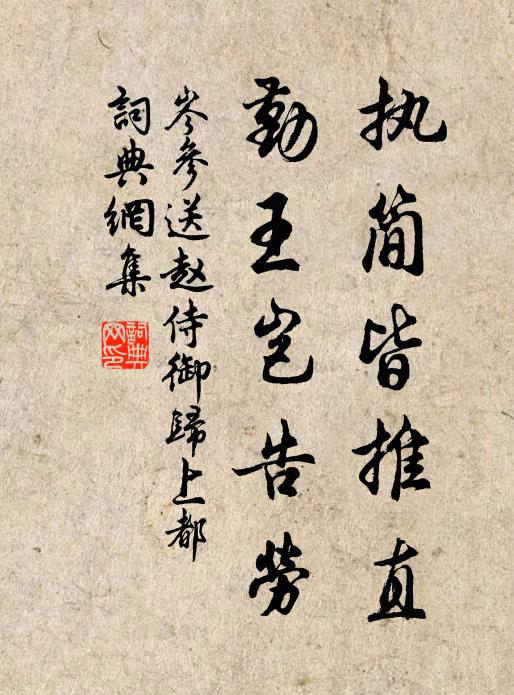 执简皆推直
勤王岂告劳
岑参送赵侍御歸上都
詞典網集
詞典网印